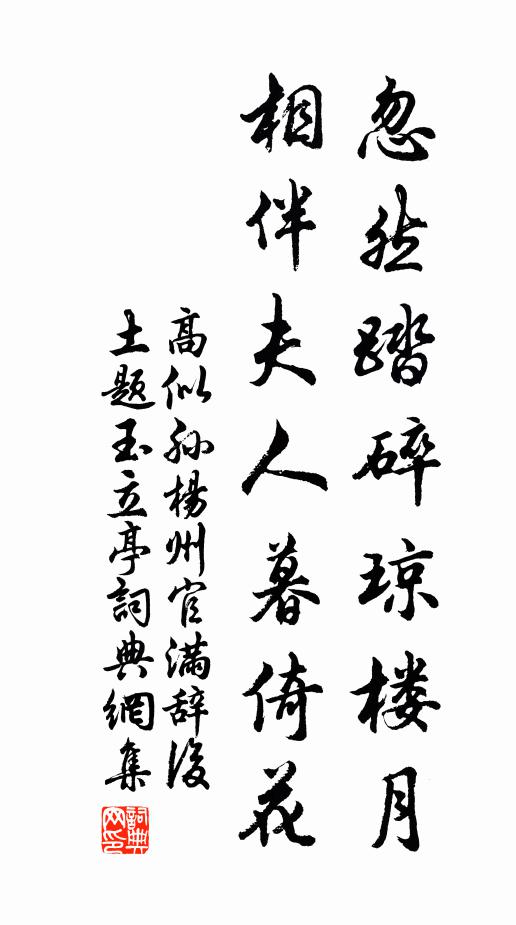 忽然踏碎琼楼月
相伴夫人暮倚花
高似孙杨州官满辞后
土题玉立亭词典网集
词典网印